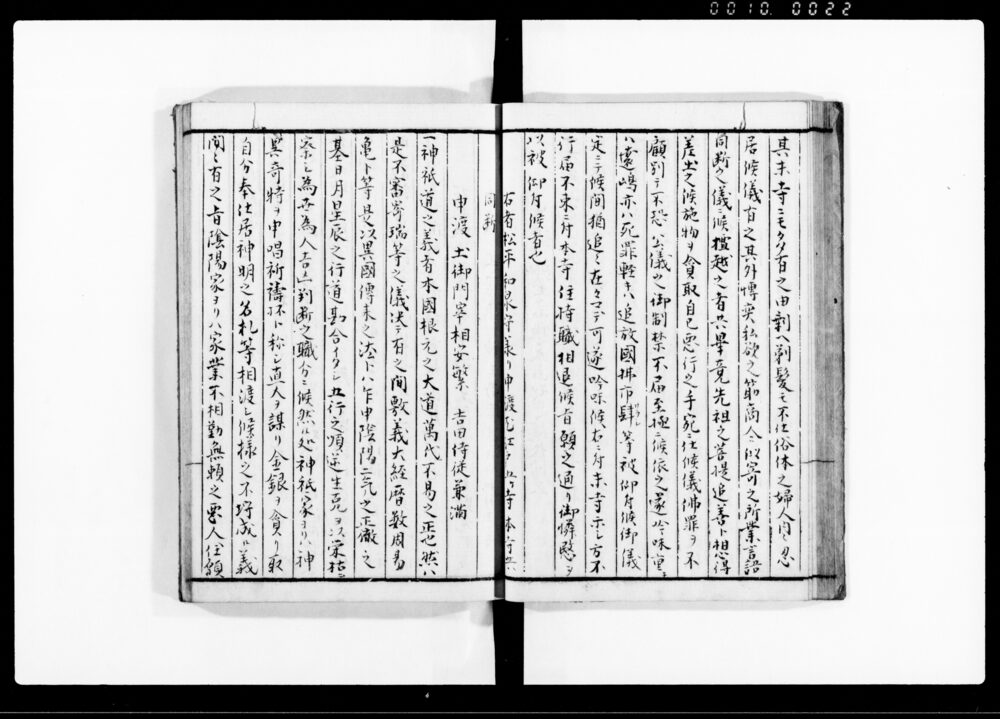 0010. 0022
其末寺ニモクタ有之由剰ヘ剃髪モ不仕俗体之婦人同ク忍
居候儀有之其外博奕私欲之筋商人ニ似寄之所業言語
同断之儀ニ候檀越之者共畢竟先祖之菩提追善ト相心得
差出之候施物ヲ貪取自己悪行之手宛ニ仕候儀佛罪ヲ不
顧別テ不恐 公儀之御制禁不届至極ニ候依之遂吟味重キ
ハ遠嶋亦ハ死罪軽キハ追放國拂市肆等被仰付候御儀
定ニテ候間猶追々在々マテ可遂吟味候右ニ付末寺示シ方不
行届不束ニ付本寺住持職相退候旨願之通リ御憐愍ヲ
以被 仰付候者也
右者松平和泉守様ヨリ申渡
同断
申渡 土御門宰相安繁 吉田侍従兼満
一神祇道之義者本國根元之大道萬代不易之正也然ハ
是不審寄瑞等之儀决テ有之間敷義大経暦数周易
亀卜等是以異國傳来之法ト八乍申陰陽二気之正徹之
基日月星辰之行道勘合イタシ五行之順逆生克ヲ以栄枯ニ
察シ為世為人吉凶判断之職分ニ候然ル処神祇家ヨリハ神
異奇特ヲ申唱祈禱抔ト称シ直人ヲ謀リ金銀ヲ貪リ取
自分奉仕居神明之名札等相渡シ候様之不埒成ル義
間々有之旨陰陽家ヨリハ家業不相勤無頼之悪人住願